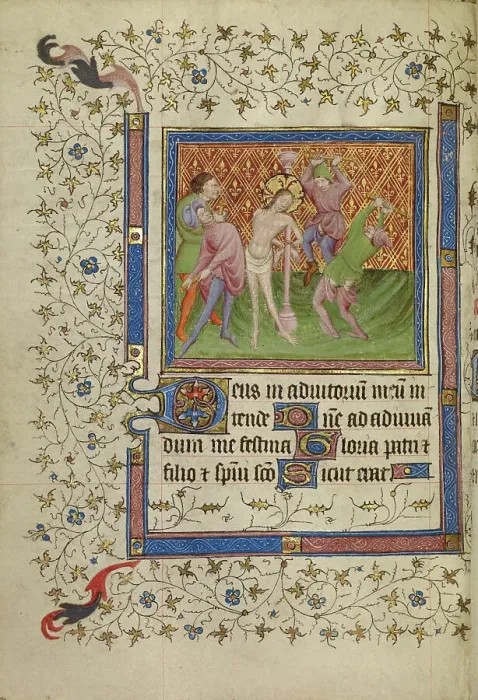 Deus in adiutoriū meū in
tende Dn̄e ad adiuuā
dum me festina Gloria patri ⁊
filio ⁊ spūi sc̄o Sicut erat